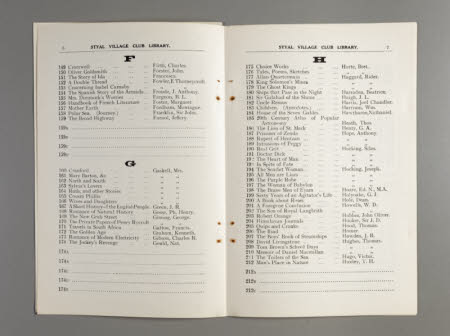 6 STYAL VILLAGE CLUB LIBRARY.
F
149 Cromwell ... Firth, Charles.
150 Oliver Goldsmith ... Forster, John.
151 The Story of Ida ... Francesca.
152 A Double Thread ... Fowler, E. Thorneycroft.
153 Concerning Isabel Carnaby ... " "
154 The Spanish Story of the Armada ... Froude, J. Anthony.
155 Mrs. Dimmock's Worries ... Farjeon, B. L.
156 Handbook of French Literature ... Foster, Margaret
157 Mother Earth ... Fordham, Montague.
158 Polar Sea. (Journey.) ... Franklin, Sir John.
159 The Broad Highway ... Farnol, Jeffery.
159a
159b
159c
159d
G
160 Cranford ... Gaskell, Mrs.
161 Mary Barton, &c. ... "
162 North and South ... "
163 Sylvia's Lovers ... "
164 Ruth, and other Stories ... "
165 Cousin Phillis ... "
166 Wives and Daughters ... "
167 A Short History of the English People. Green, J. R.
168 Romance of Natural History ... Gosse, Ph. Henry.
169 The New Grub Street ... Gissing, George.
170 The Private Papers of Henry Ryecroft " "
171 Travels in South Africa ... Galton, Francis.
172 The Golden Age ... Graham, Kenneth.
173 Romance of Modern Electricity ... Gibson, Charles R.
174 The Jockey's Revenge ... Gould, Nat.
174a
174b
174c
174d
STYAL VILLAGE CLUB LIBRARY. 7
H
175 Choice Works ... Harte, Bret.
176 Tales, Poems, Sketches ... " "
177 Allan Quatermain ... Haggard, Rider.
178 King Solomon's Mines ... " "
179 The Ghost Kings ... " "
180 Ships that Pass in the Night ... Harraden, Beatrice.
181 Sir Galahad of the Slums ... Haigh, J. L.
182 Uncle Remus ... Harris, Joel Chandler.
183 Children. (Anecdotes.) ... Harrison, Wm.
184 House of the Seven Gables ... Hawthorne, Nathaniel.
185 20th Century Atlas of Popular Astronomy ... Heath, Thos.
186 The Lion of St. Mark ... Henty, G. A.
187 Prisoner of Zenda ... Hope, Anthony.
188 Rupert of Hentzau ... " "
189 Intrusions of Peggy ... " "
190 Real Grit ... Hocking, Silas.
191 Doctor Dick ... " "
192 The Heart of Man ... " "
193 In Spite of Fate ... " "
194 The Scarlet Woman ... Hocking, Joseph.
195 All Men are Liars ... " "
196 The Purple Robe ... " "
197 The Woman of Babylon ... " "
198 The Brave Men of Eyam ... Hoare, Ed. N., M.A.
199 Sixty Years of an Agitator's Life ... Holyoake, G. J.
200 A Book about Roses ... Hole, Dean.
201 A Foregone Conclusion ... Howells, W. D.
202 The Son of Royal Langbrith ... " "
203 Robert Orange ... Hobbes, John Oliver.
204 Himalayan Journals ... Hooker, Sir J. D.
205 Quips and Cranks ... Hood, Thomas.
206 The Iliad ... Homer.
207 The Boys' Book of Steamships ... Howden, J. R.
208 David Livingstone ... Hughes, Thomas.
209 Tom Brown's School Days ... " "
210 Memoir of Daniel Macmillan ... " "
211 The Toilers of the Sea ... Hugo, Victor.
212 Man's Place in Nature ... Huxley, T. H.
212a
212b
212c